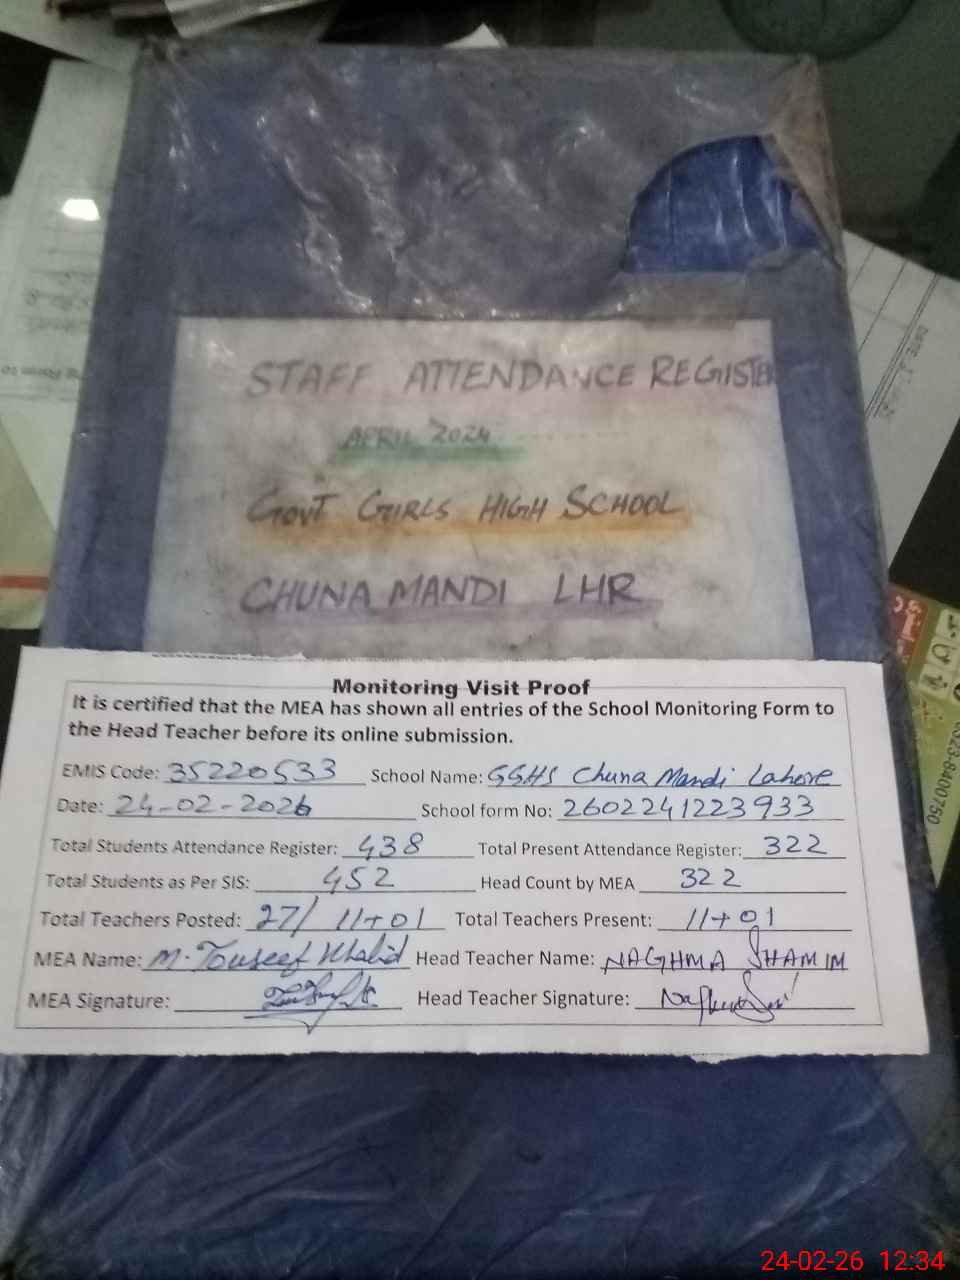 STAFF ATTENDANCE REGISTER
APRIL 2024
GOVT GIRLS HIGH SCHOOL
CHUNA MANDI LHR
Monitoring Visit Proof
It is certified that the MEA has shown all entries of the School Monitoring Form to
the Head Teacher before its online submission.
EMIS Code: 35220533 School Name: GGHS Chuna Mandi Lahore
Date: 24-02-2026 School form No: 2602241223933
Total Students Attendance Register: 438 Total Present Attendance Register: 322
Total Students as Per SIS: 452 Head Count by MEA 322
Total Teachers Posted: 27/ 11+01 Total Teachers Present: 11+01
MEA Name: M. Touseef Khalid Head Teacher Name: NAGHMA SHAMIM
MEA Signature: Head Teacher Signature:
0323-8400750
24-02-26 12:34